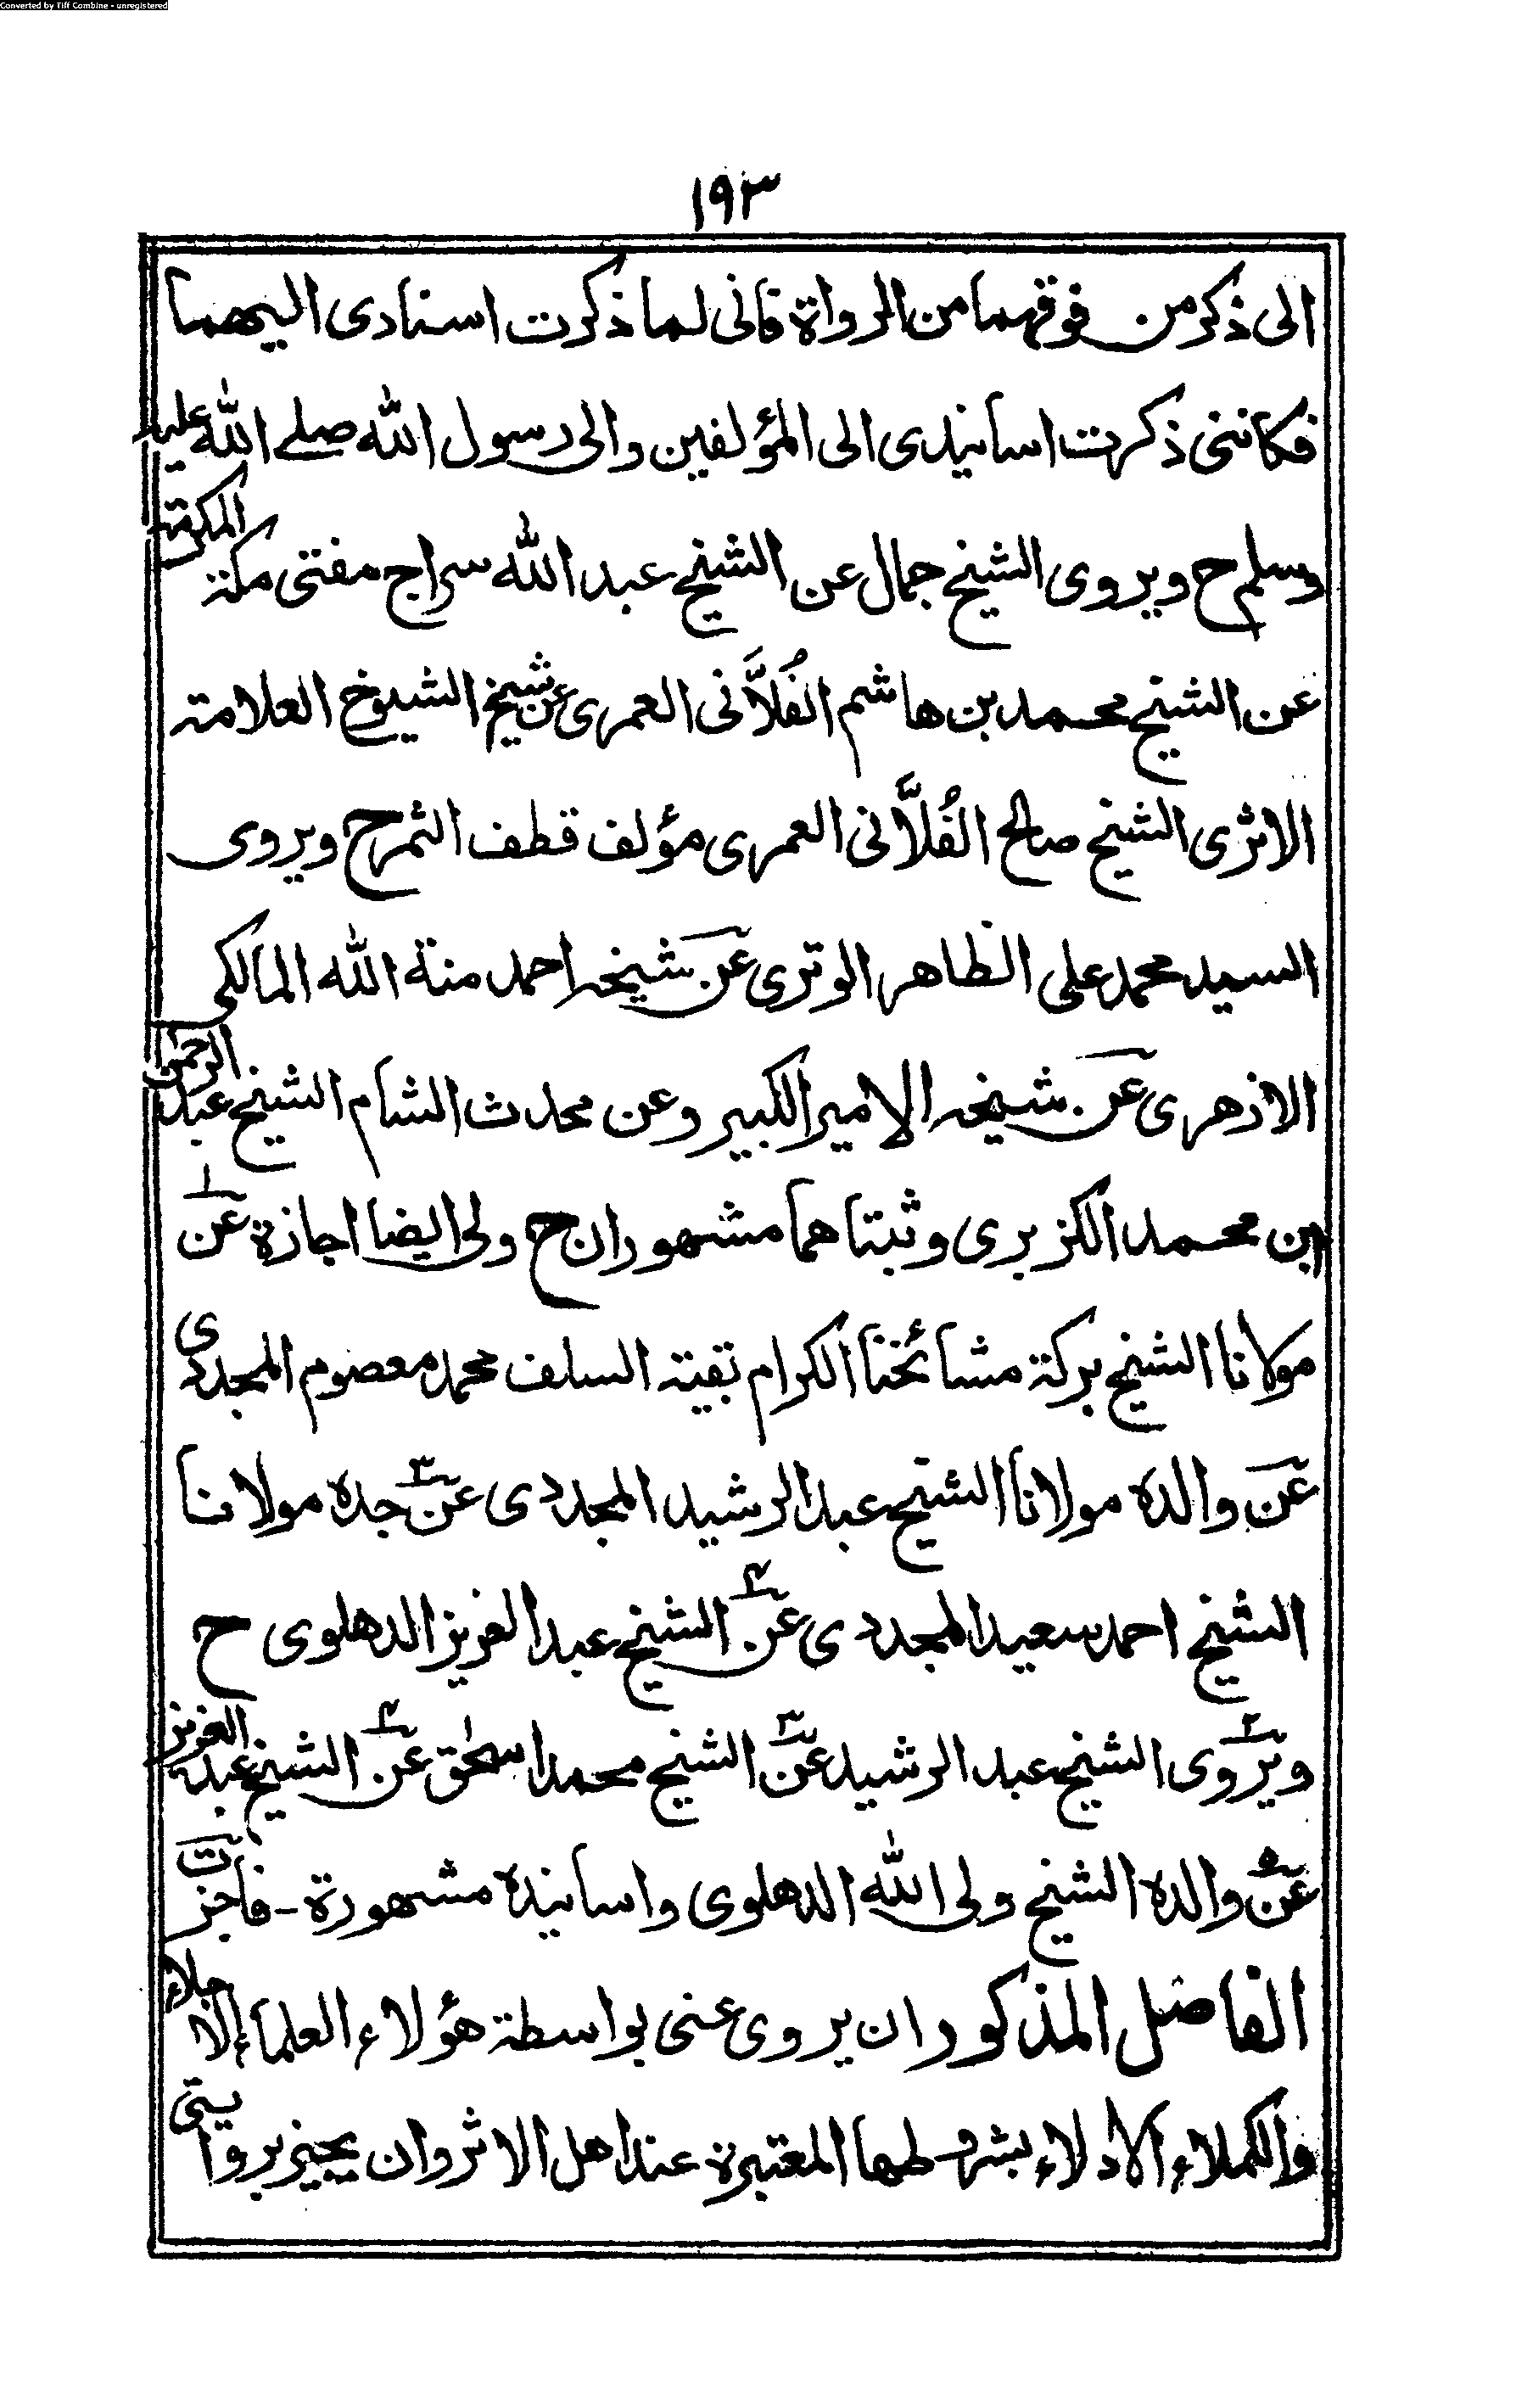 Converted by Tiff Combine - unregistered
١٩٣
الى ذكر من فوقهما من الرواة فانى لما ذكرت اسنادى اليهما
فكاننى ذكرت اسانيدى الى المؤلفين والى رسول الله صلے الله عليه
وسلم ح ويروى الشيخ جمال عن الشيخ عبد الله سراج مفتى مكة المكرمة
عن الشيخ محمد بن هاشم الفُلاَّنى العمرى عن شيخ الشيوخ العلامة
الاثرى الشيخ صالح الفُلاَّنى العمرى مؤلف قطف الثمر ح ويروى
السيد محمد على الظاهر الوترى عن شيخه احمد منة الله المالكى
الازهرى عن شيخه الامير الكبير وعن محدث الشام الشيخ عبد الرحمن
بن محمد الكزبرى وثبتاهما مشهوران ح ولى ايضا اجازة عن ١
مولانا الشيخ بركة مشائخنا الكرام بقية السلف محمد معصوم المجددى
عن والده مولانا الشيخ عبد الرشيد المجددى عن ٣ جده مولانا
الشيخ احمد سعيد المجددى عن ٤ الشيخ عبد العزيز الدهلوى ح
ويروى ٢ الشيخ عبد الرشيد عن ٣ الشيخ محمد اسحٰق عن ٤ الشيخ عبد العزيز
عن ٥ والده الشيخ ولى الله الدهلوى واسانيده مشهورة - فاجزت
الفاضل المذكور ان يروى عنى بواسطة هؤلاء العلماء الاجلاء
والكملاء الادلاء بشروطها المعتبرة عند اهل الاثر وان يجيز بروايتى